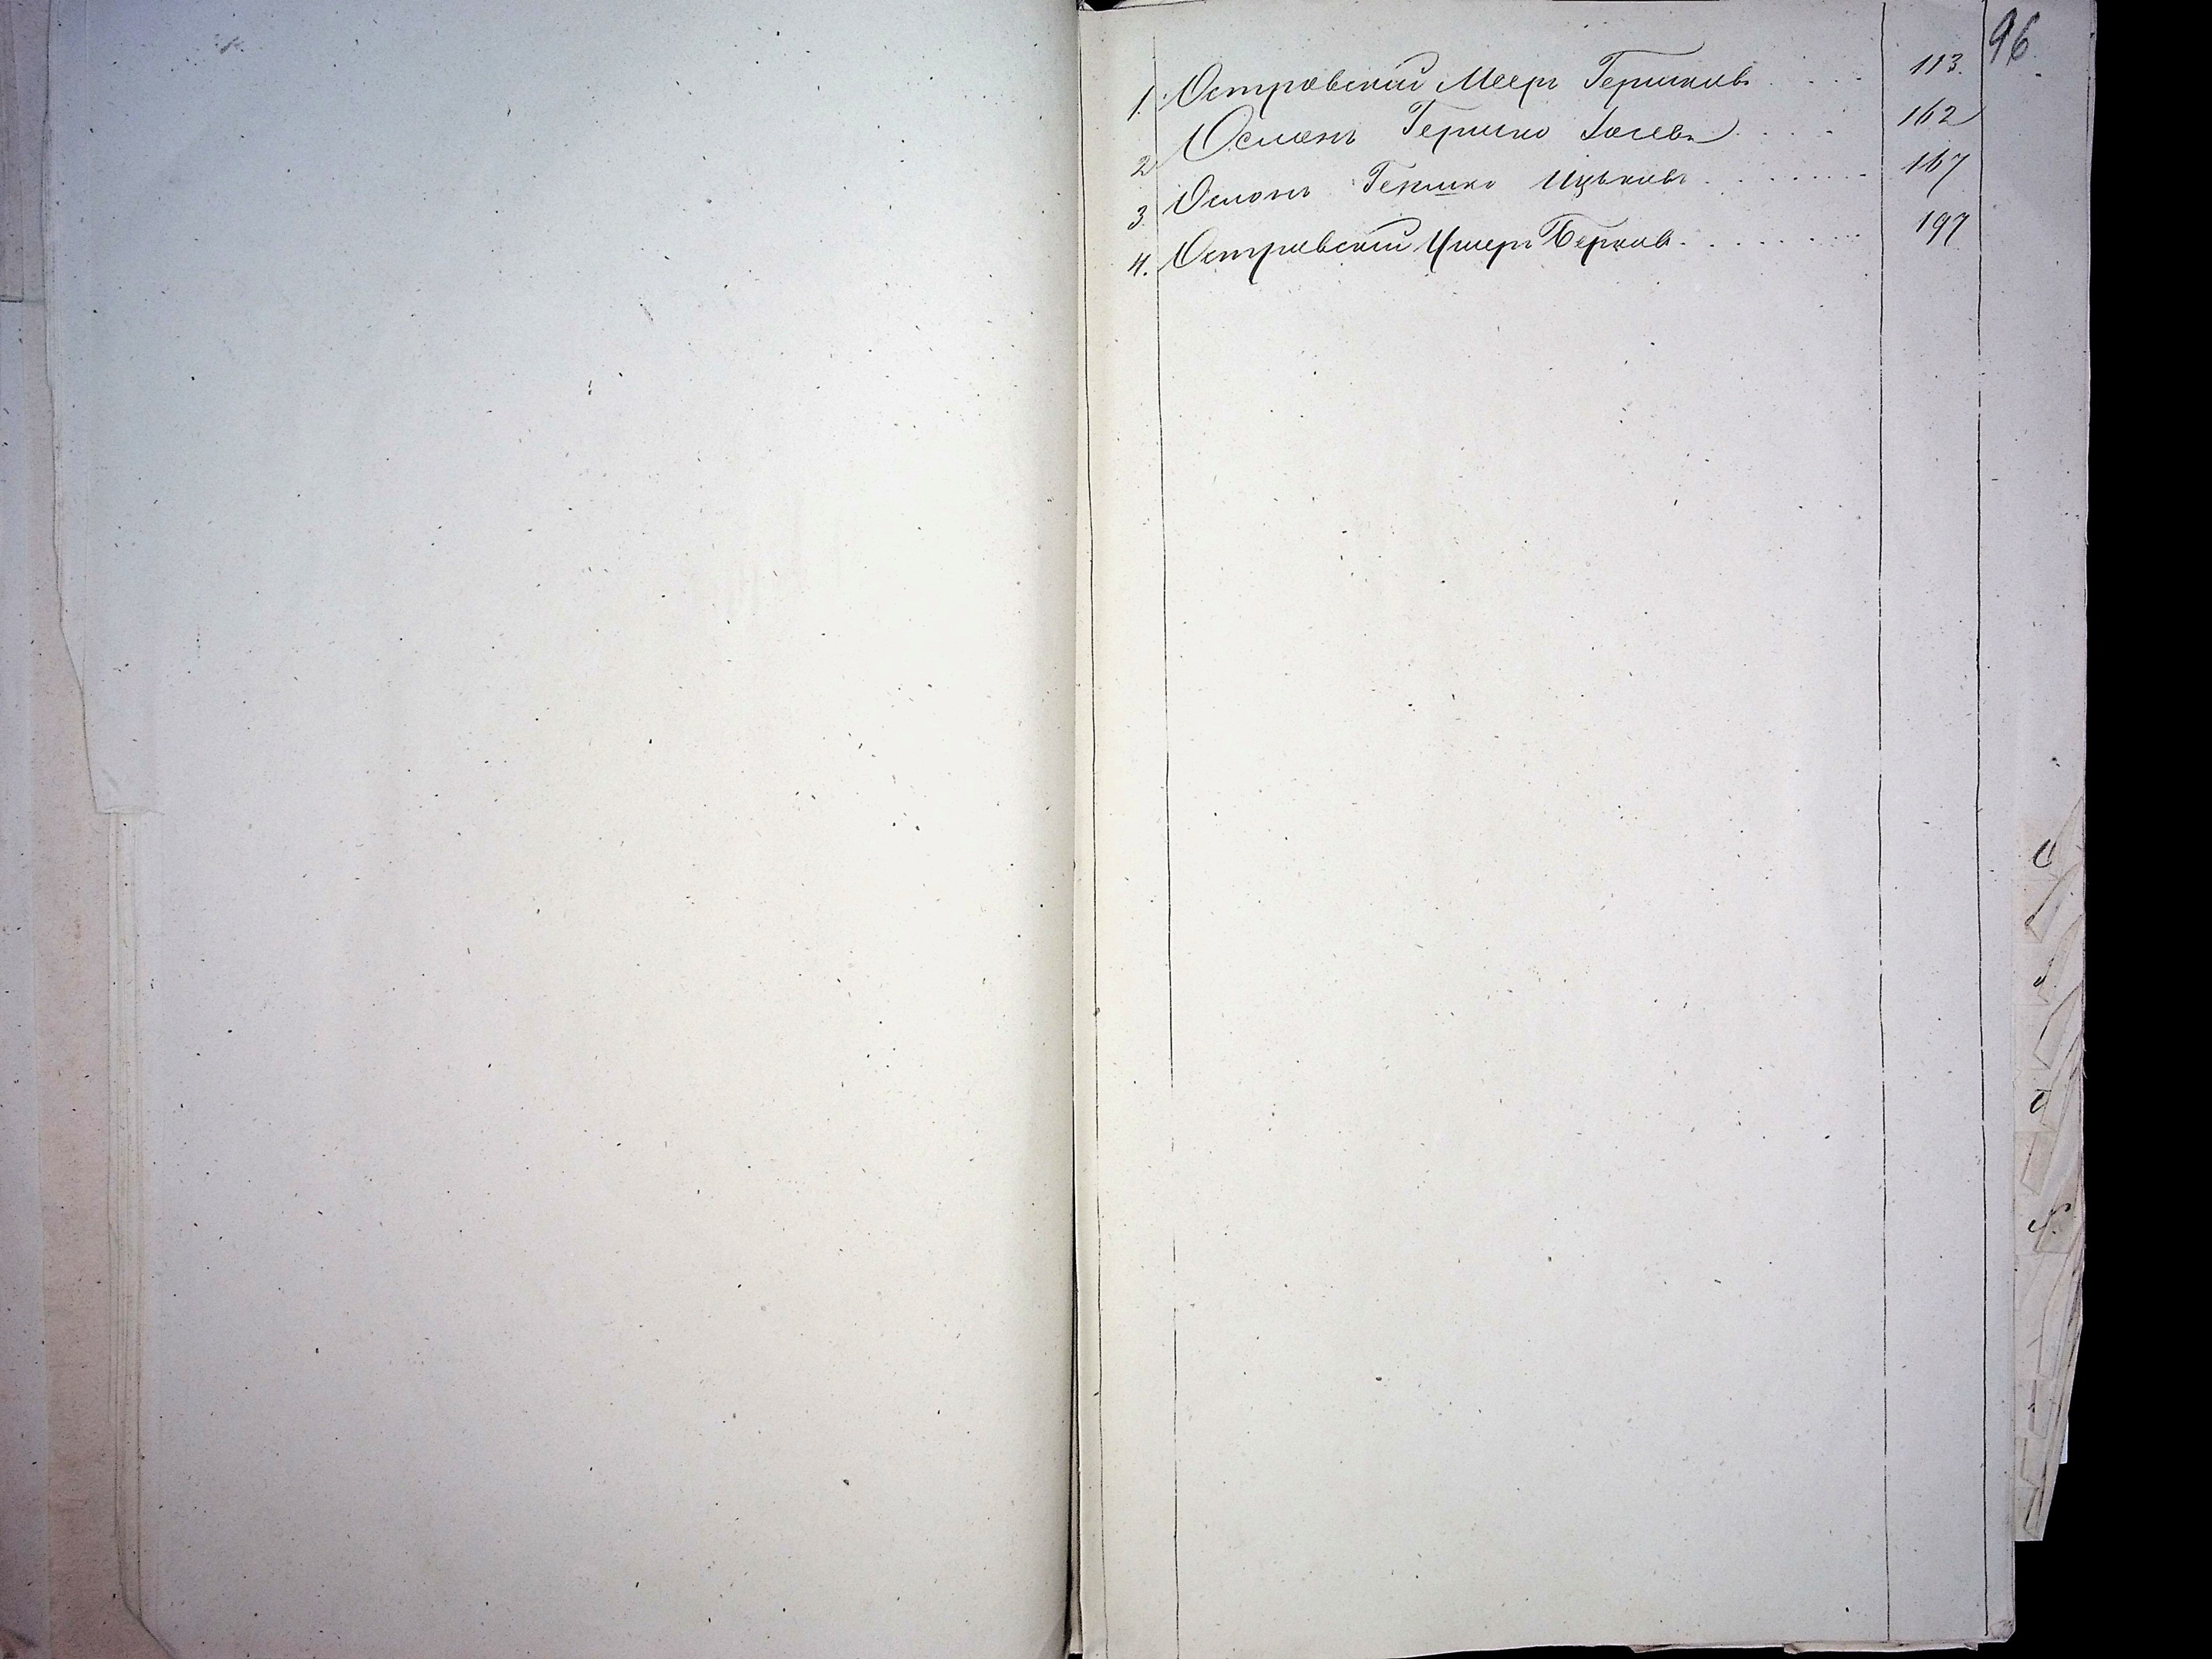 96
1. Островскій Мееръ Гершковъ 113.
2 Ослонъ Гершко Іосевъ 162
3 Ослонъ Гершко Ицьковъ 167
4. Островскій Берковъ 197